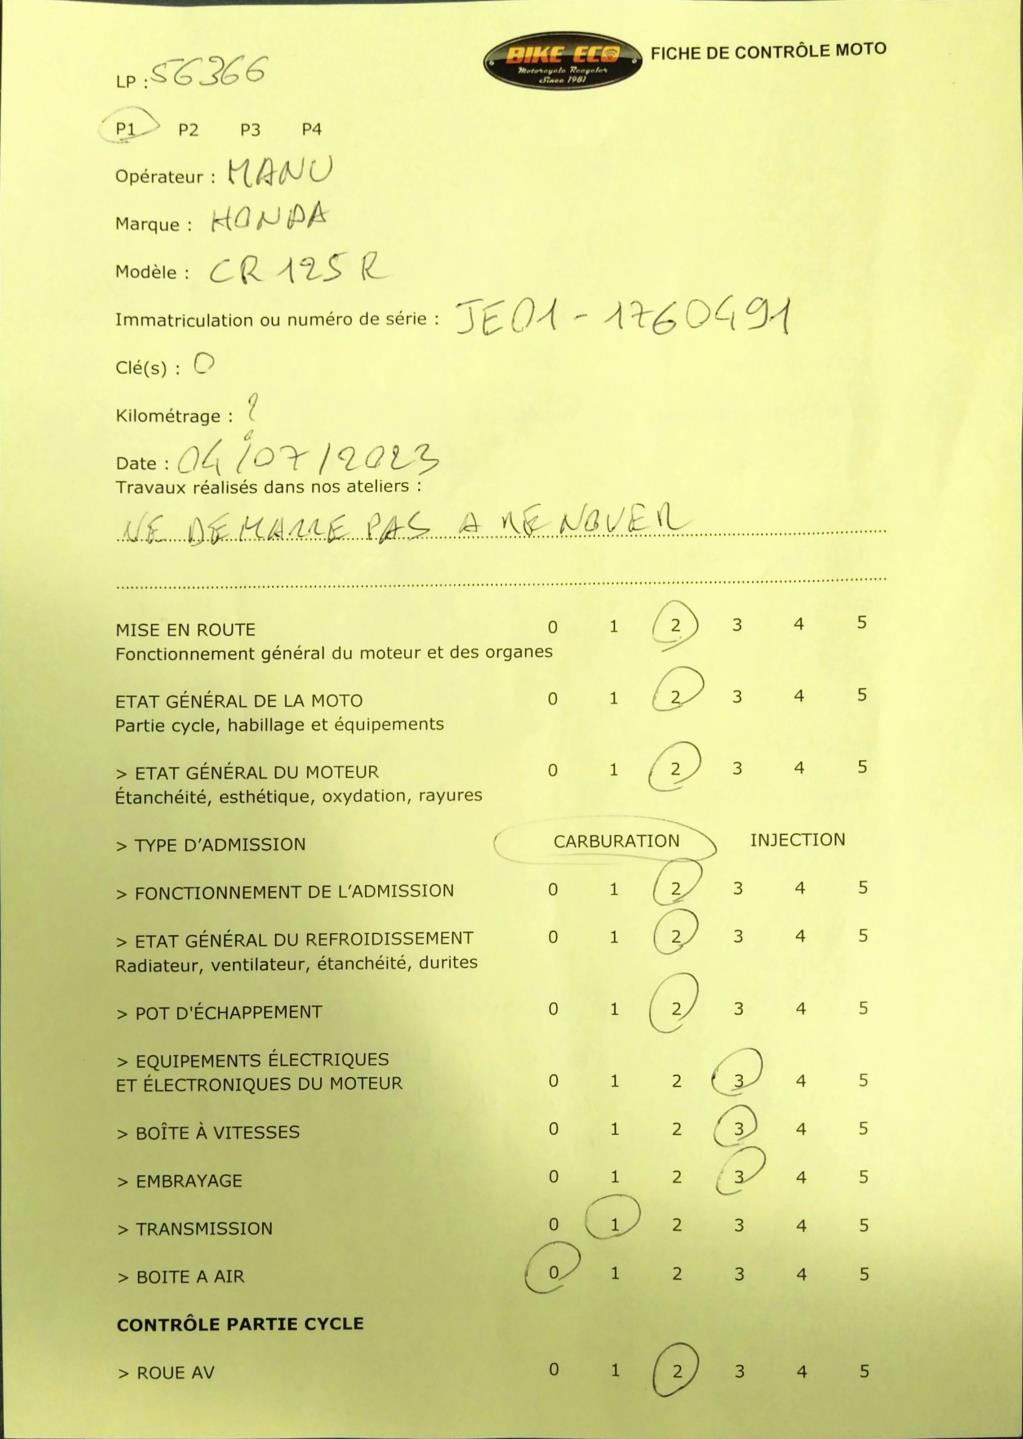 BIKE ECO
Motorcycle Recycler
Since 1981
FICHE DE CONTRÔLE MOTO
LP : 56366
P1 P2 P3 P4
Opérateur : MANU
Marque : HONDA
Modèle : CR 125 R
Immatriculation ou numéro de série : JE01-1760491
Clé(s) : 0
Kilométrage : ?
Date : 04/07/2023
Travaux réalisés dans nos ateliers :
NE DEMARRE PAS A RENOVER
MISE EN ROUTE 0 1 2 3 4 5
Fonctionnement général du moteur et des organes
ETAT GÉNÉRAL DE LA MOTO 0 1 2 3 4 5
Partie cycle, habillage et équipements
> ETAT GÉNÉRAL DU MOTEUR 0 1 2 3 4 5
Étanchéité, esthétique, oxydation, rayures
> TYPE D'ADMISSION CARBURATION INJECTION
> FONCTIONNEMENT DE L'ADMISSION 0 1 2 3 4 5
> ETAT GÉNÉRAL DU REFROIDISSEMENT 0 1 2 3 4 5
Radiateur, ventilateur, étanchéité, durites
> POT D'ÉCHAPPEMENT 0 1 2 3 4 5
> EQUIPEMENTS ÉLECTRIQUES
ET ÉLECTRONIQUES DU MOTEUR 0 1 2 3 4 5
> BOÎTE À VITESSES 0 1 2 3 4 5
> EMBRAYAGE 0 1 2 3 4 5
> TRANSMISSION 0 1 2 3 4 5
> BOITE A AIR 0 1 2 3 4 5
CONTRÔLE PARTIE CYCLE
> ROUE AV 0 1 2 3 4 5